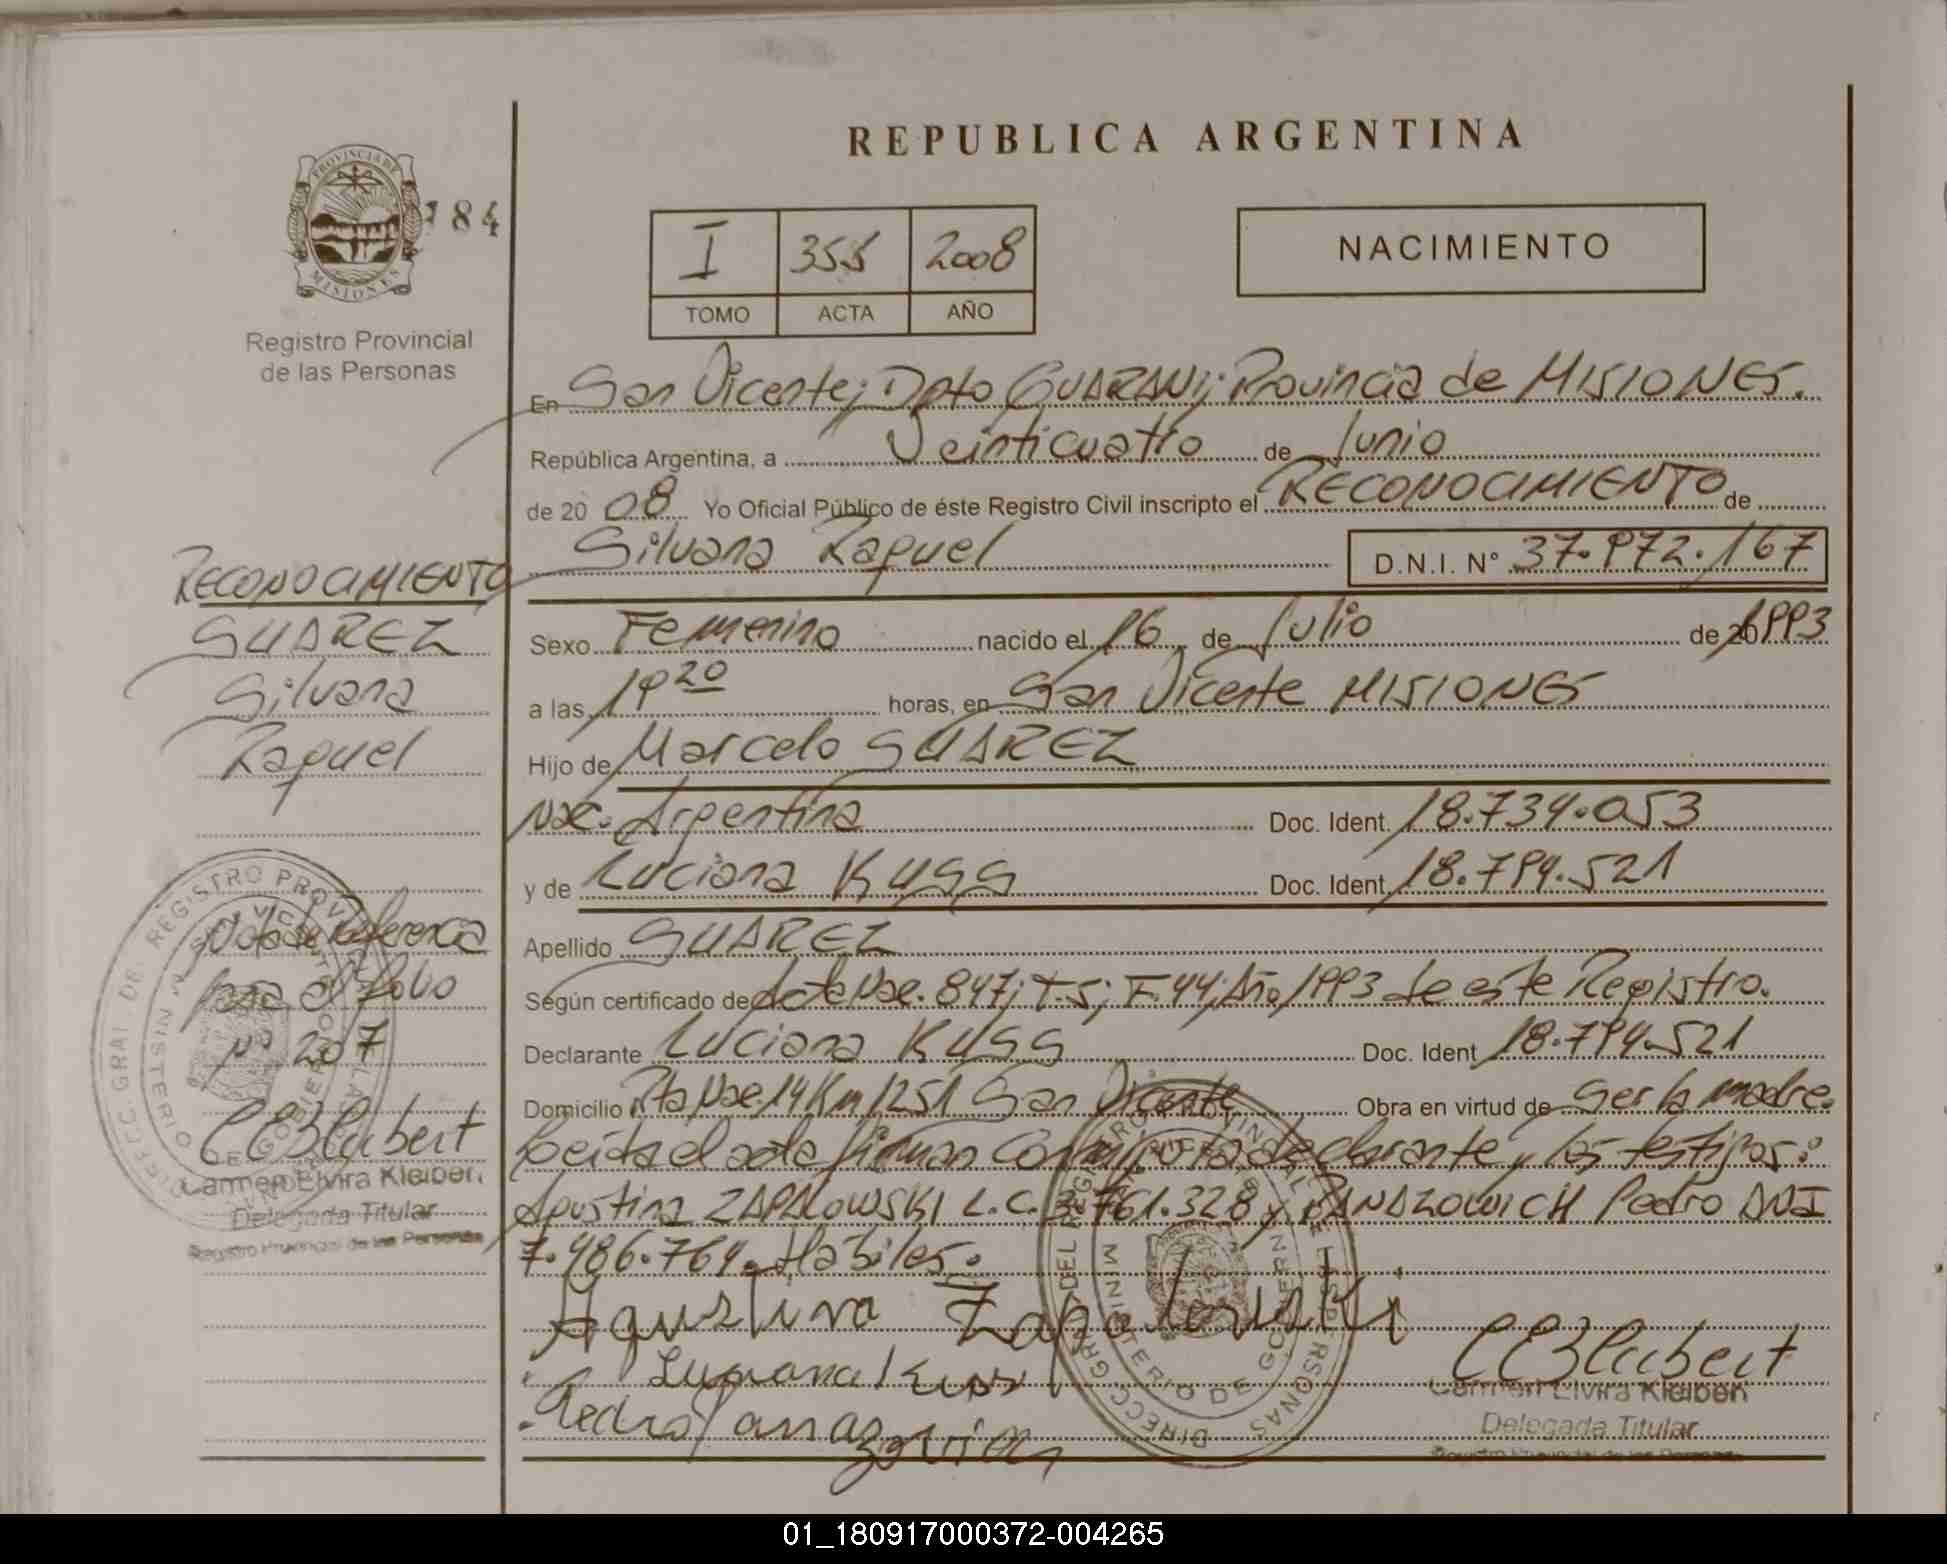 REPUBLICA ARGENTINA
PROVINCIA DE
MISIONES
184
Registro Provincial
de las Personas
I 355 2008
TOMO ACTA AÑO
NACIMIENTO
En San Vicente; Dpto GUARANI; Provincia de MISIONES.
República Argentina, a Veinticuatro de Junio
de 20 08 Yo Oficial Público de éste Registro Civil inscripto el RECONOCIMIENTO de
Silvana Raquel D.N.I. Nº 37.972.167
Sexo Femenino nacido el 16 de Julio de 20 1993
a las 19 20 horas, en San Vicente MISIONES
Hijo de Marcelo SUAREZ
Nac. Argentina Doc. Ident. 18.734.053
y de Luciana KUSS Doc. Ident. 18.794.521
Apellido SUAREZ
Según certificado de Acta Nac. 847; T-5; F.44; Año 1993 de este Registro.
Declarante Luciana KUSS Doc. Ident 18.794.521
Domicilio Rta Nac. 14 Km 1251 San Vicente Obra en virtud de Ser la madre.
Leida el acta firman conmigo la declarante y los testigos:
Agustina ZAPALOWSKI L.C. 3.761.328 y PANAZOWICH Pedro DNI
7.486.764. Habiles.
Agustina Zapalowski
Luciana Kuss
Pedro
CEKlubert
Carmen Elvira Kleiber
Delegada Titular
Registro Provincial de las Personas
RECONOCIMIENTO
SUAREZ
Silvana
Raquel
Nota de Referencia
para el folio
Nº 207
CEKlubert
Carmen Elvira Kleiber
Delegada Titular
Registro Provincial de las Personas
01_180917000372-004265